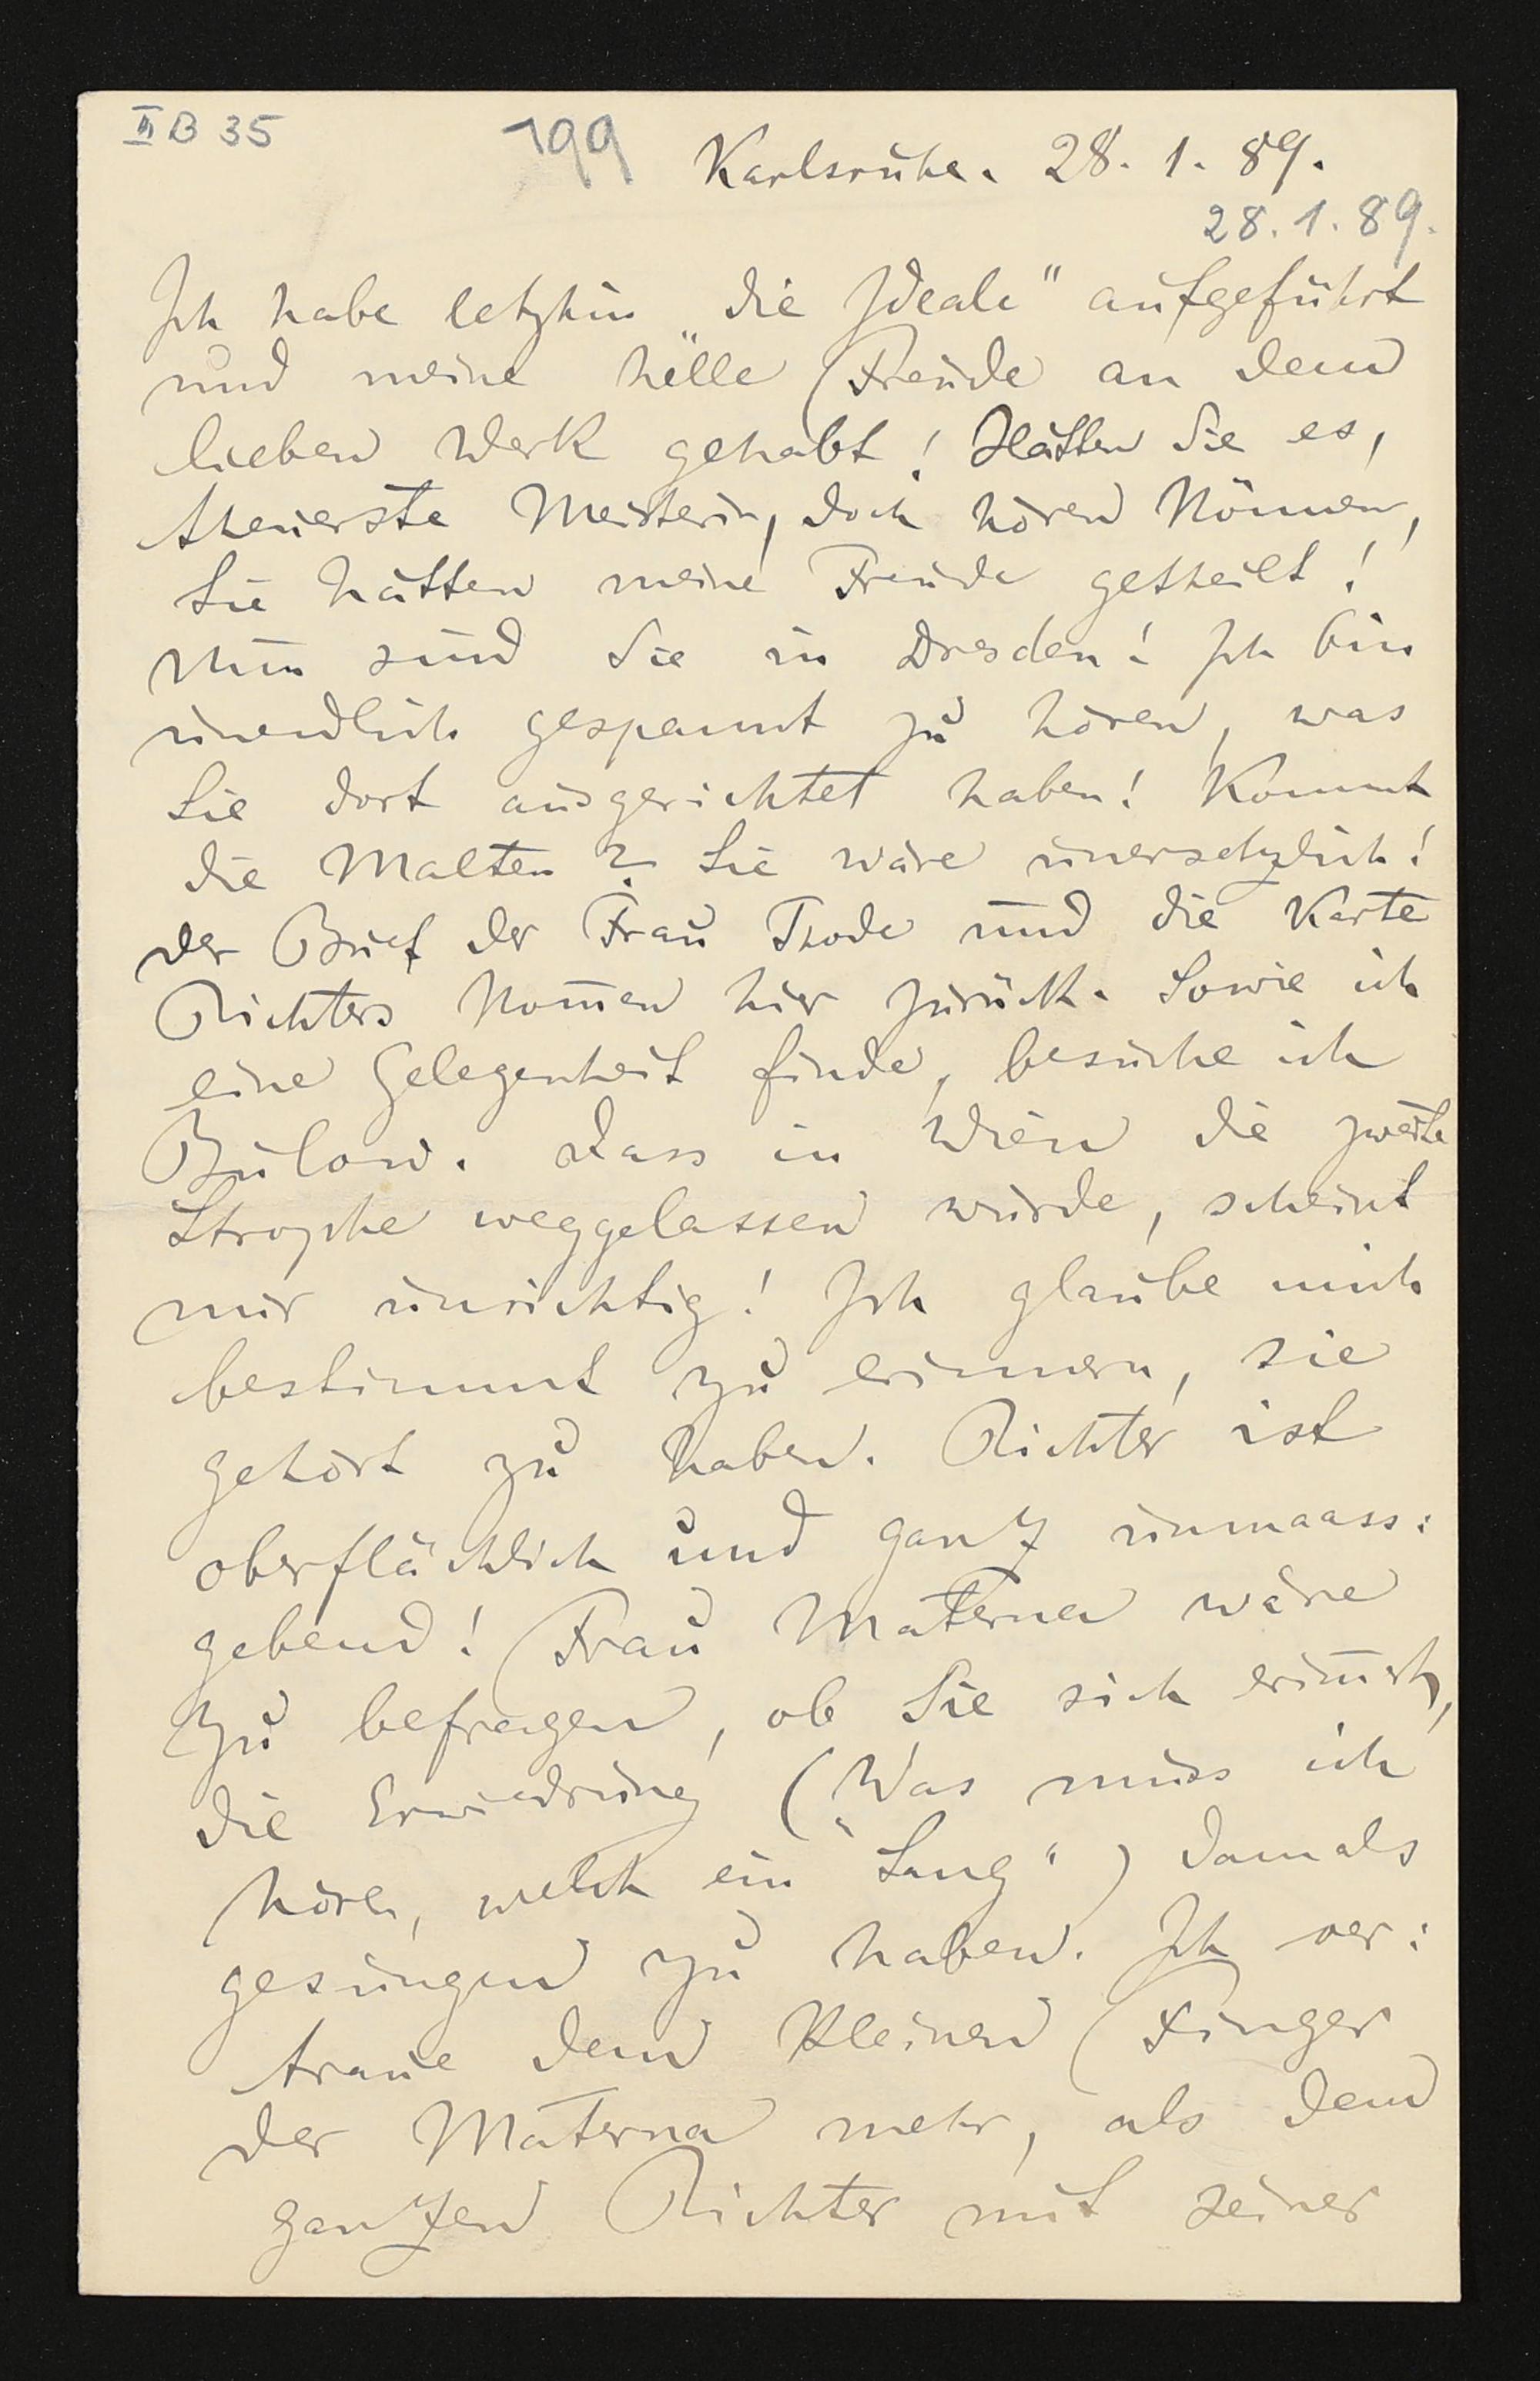 II B 35
199
Karlsruhe. 28. 1. 89.
28. 1. 89.
Ich habe letzhin „die Ideale" aufgeführt
und meine helle Freude an dem
lieben Werk gehabt! Hätten Sie es,
theuerste Meisterin, doch hören können,
Sie hätten meine Freude getheilt!
Nun sind Sie in Dresden! Ich bin
unendlich gespannt zu hören, was
Sie dort ausgerichtet haben! Kommt
die Malten? Sie wäre unersetzlich!
Der Brief der Frau Thode und die Karte
Richters kom̅en hier zurück. Sowie ich
eine Gelegenheit finde, besuche ich
Bülow. Dass in Wien die zweite
Strophe weggelassen wurde, scheint
mir unrichtig! Ich glaube mich
bestimmt zu erinnern, sie
gehört zu haben. Richter ist
oberflächlich und ganz unmaass:
gebend! Frau Materna wäre
zu befragen, ob Sie sich erin̅ert,
die Erwiedrung („Was muss ich
hören, welch ein Sang") damals
gesungen zu haben. Ich ver:
traue dem kleinen Finger
der Materna mehr, als dem
ganzen Richter mit seiner